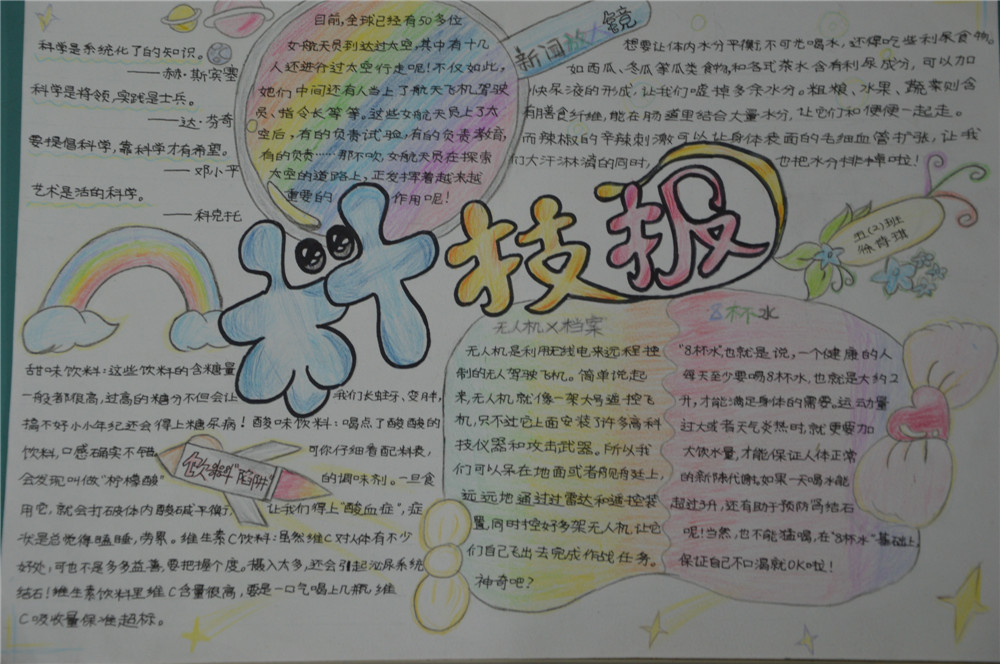 科学是系统化了的知识。
——赫·斯宾塞
科学是将领,实践是士兵。
——达·芬奇
要提倡科学,靠科学才有希望。
——邓小平
艺术是活的科学。
——科克托
目前,全球已经有50多位
女航天员到达过太空,其中有十几
人还进行过太空行走呢!不仅如此,
她们中间还有人当上了航天飞机驾驶
员、指令长等等。这些女航天员上了太
空后,有的负责试验,有的负责教育,
有的负责……那不吹,女航天员在探索
太空的道路上,正发挥着越来越
重要的 作用呢!
新闻放大镜
想要让体内水分平衡,不可光喝水,还得吃些利尿食物。
如西瓜、冬瓜等瓜类食物,和各式茶水含有利尿成分,可以加
快尿液的形成,让我们嘘掉多余水分。粗粮、水果、蔬菜则含
有膳食纤维,能在肠道里结合大量水分,让它们和便便一起走。
而辣椒的辛辣刺激可以让身体表面的毛细血管扩张,让我
们大汗淋漓的同时, 也把水分排掉啦!
科技报
五(2)班
甜味饮料:这些饮料的含糖量
一般都很高,过高的糖分不但会让 我们长蛀牙、变胖,
搞不好小小年纪还会得上糖尿病!酸味饮料:喝点了酸酸的
饮料,口感确实不错 可你仔细看配料表,
会发现叫做“柠檬酸” 的调味剂。一旦食
用它,就会打破体内酸碱平衡, 让我们得上“酸血症”,症
状是总觉得瞌睡,劳累。维生素C饮料:虽然维C对人体有不少
好处,可也不是多多益善,要把握个度。摄入太多,还会引起泌尿系统
结石!维生素饮料里维C含量很高,要是一口气喝上几瓶,维
C吸收量保准超标。
饮料“陷阱”
无人机X档案
无人机是利用无线电来远程控
制的无人驾驶飞机。简单说起
来,无人机就像一架大号遥控飞
机,只不过它上面安装了许多高科
技仪器和攻击武器。所以我
们可以呆在地面或者舰艇上,
远远地通过过雷达和遥控装
置,同时控好多架无人机,让它
们自己飞出去完成作战任务。
神奇吧?
8杯水
“8杯水”,也就是说,一个健康的人
每天至少要喝8杯水,也就是大约2
升,才能满足身体的需要。运动量
过大或者天气炎热时,就更要加
大饮水量,才能保证人体正常
的新陈代谢,如果一天喝水能
超过3升,还有助于预防肾结石
呢!当然,也不能猛喝,在“8杯水”基础上,
保证自己不口渴就OK啦!